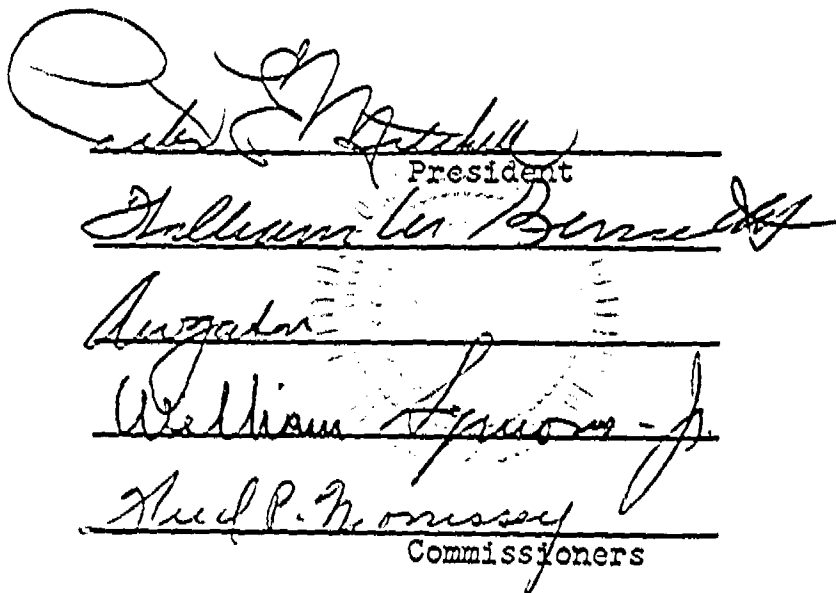 Peter E. Mitchell
President
William M. Bennett
A.W. Gatov
William Symons - Jr.
Fred P. Morrissey
Commissioners